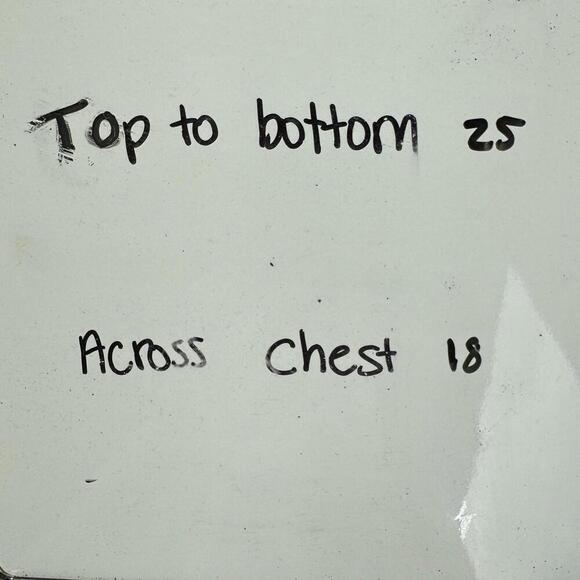 Top to bottom 25
Across Chest 18